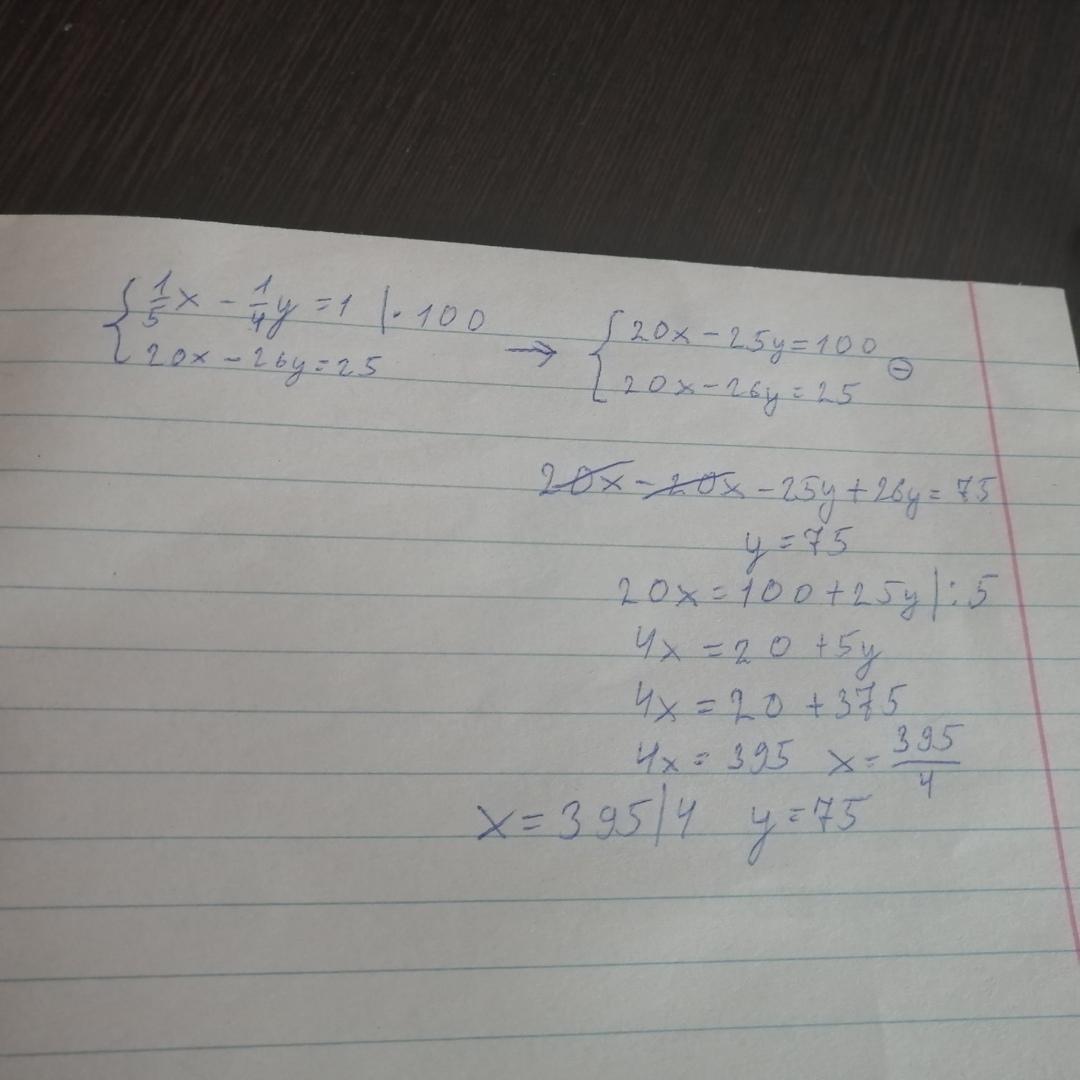 { 1/5 x - 1/4 y = 1 | · 100
20x - 26y = 25
→ { 20x - 25y = 100
20x - 26y = 25 ⊖
20x - 20x - 25y + 26y = 75
y = 75
20x = 100 + 25y | : 5
4x = 20 + 5y
4x = 20 + 375
4x = 395 x = 395/4
x = 395/4 y = 75